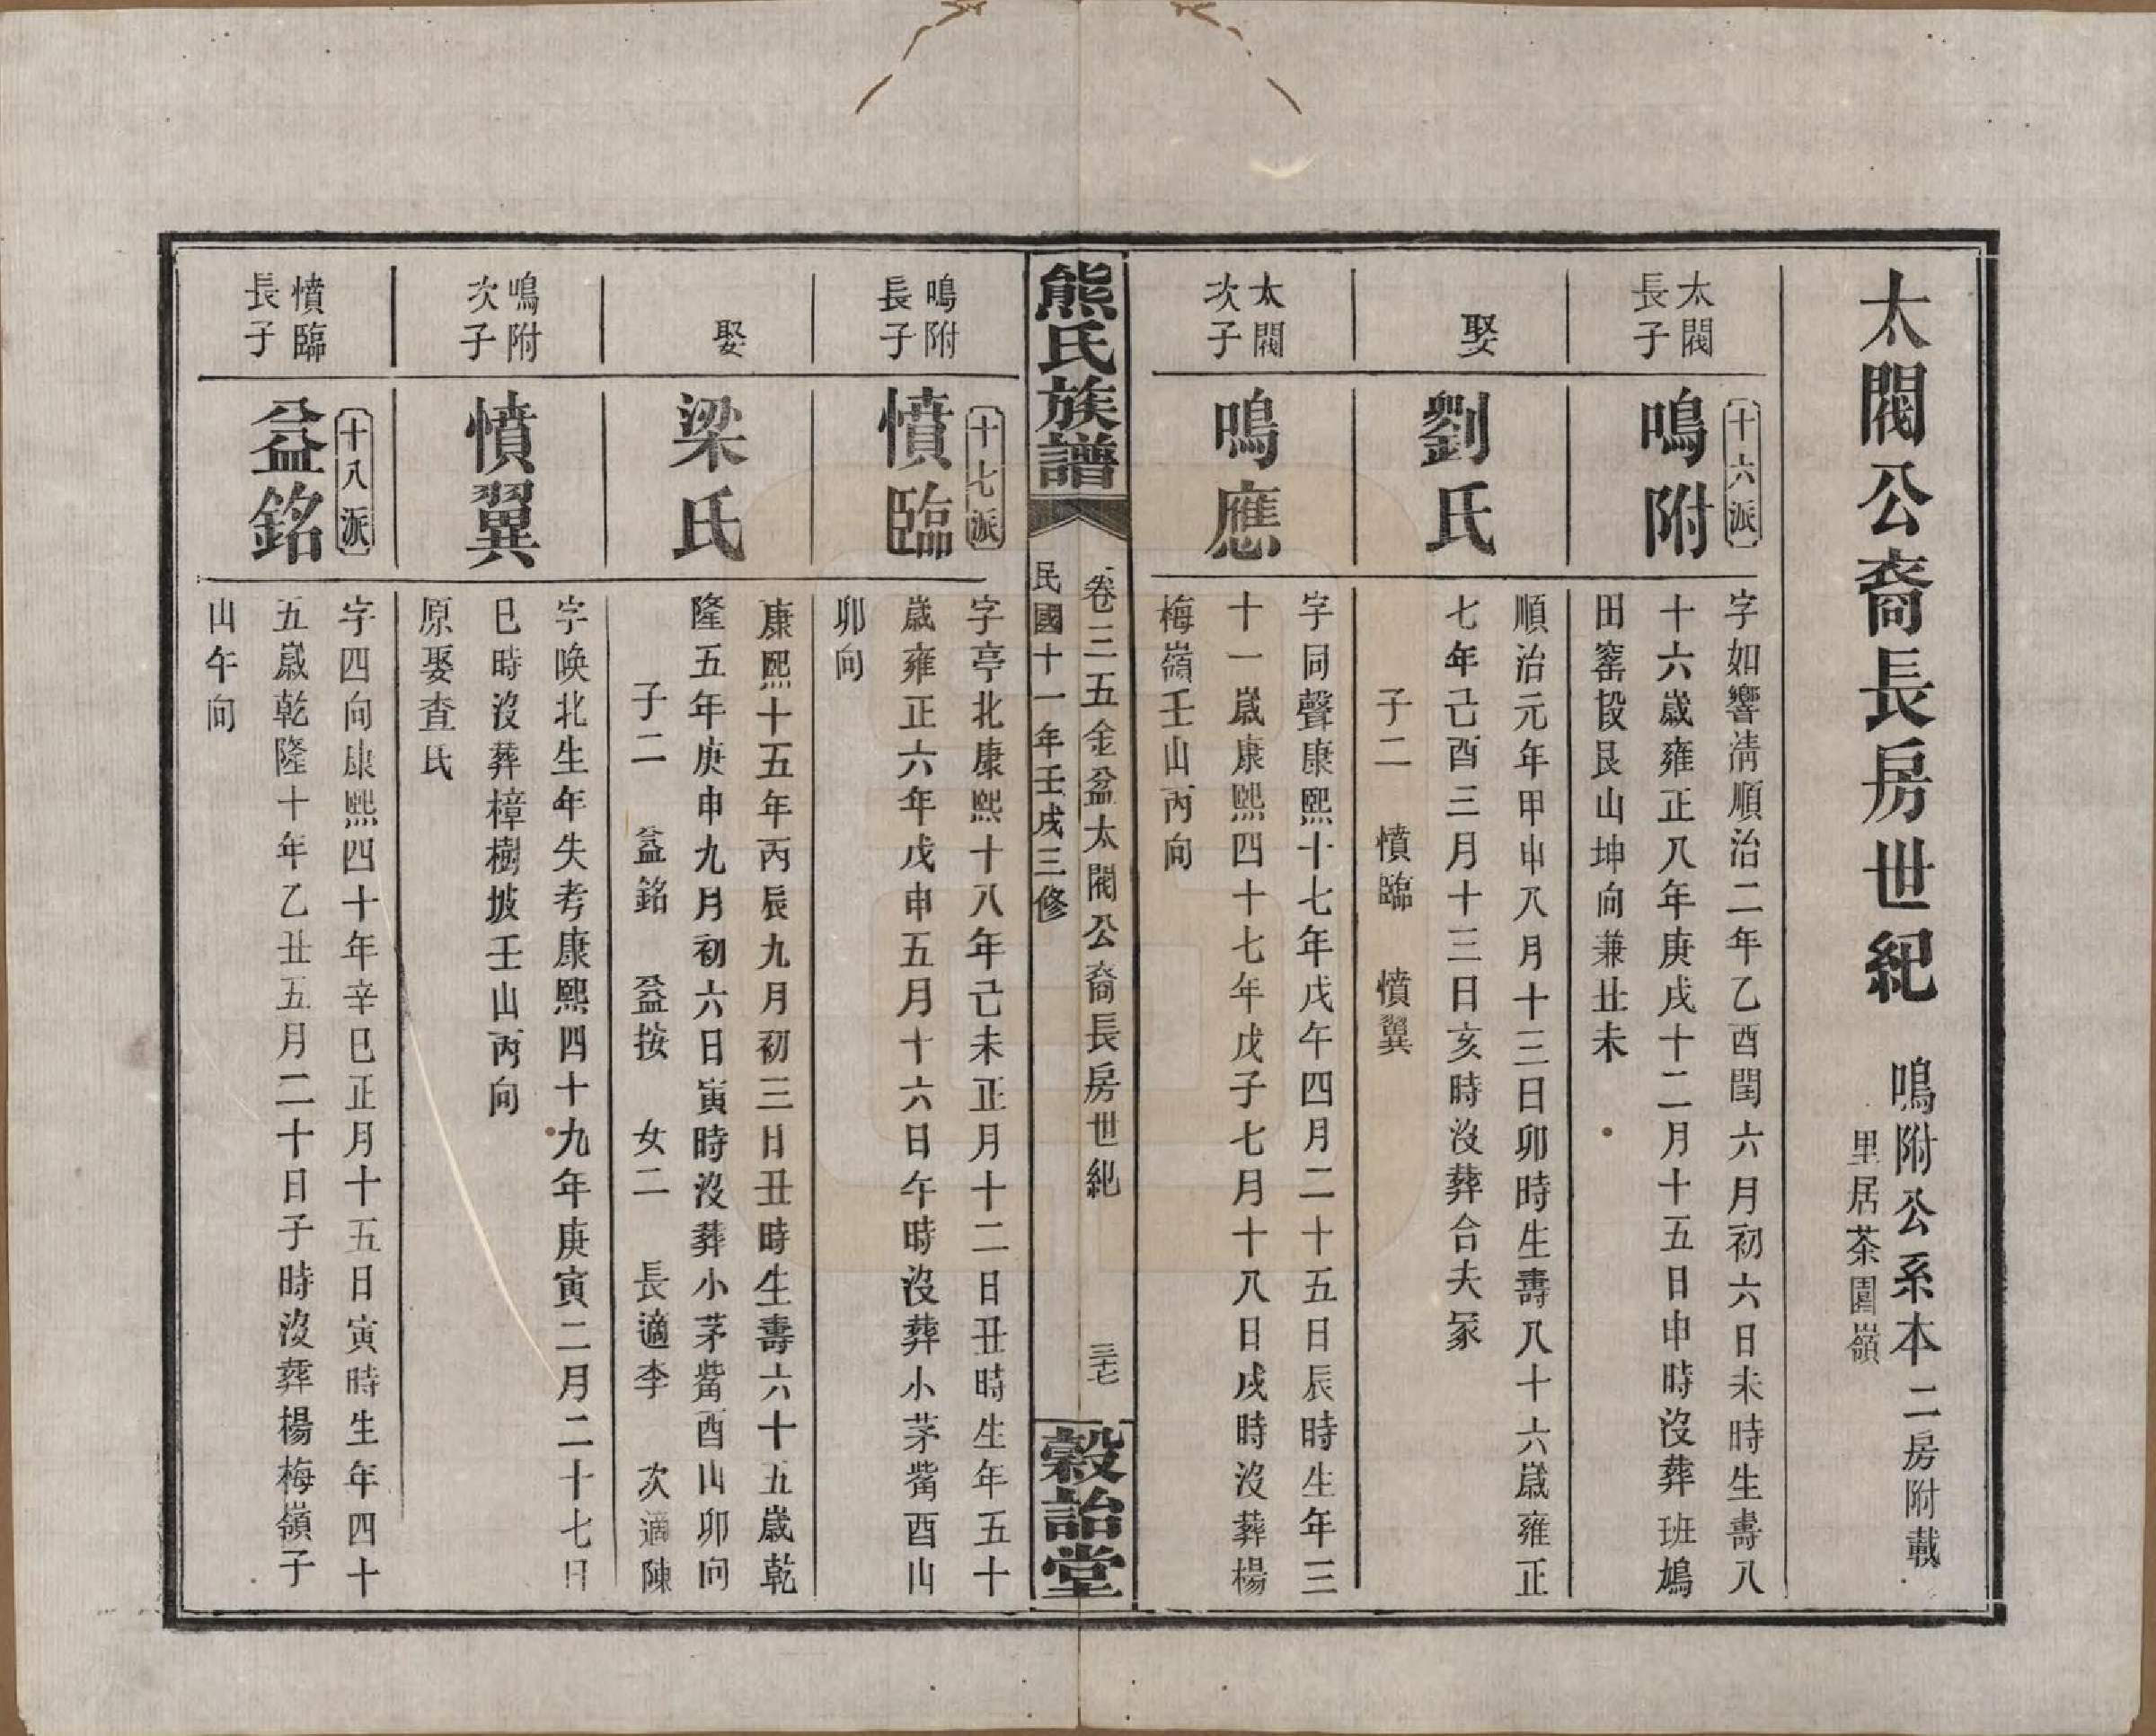 太閥公裔長房世紀
鳴附公系本二房附載
里居茶園嶺
太閥
長子
十六派
鳴附
字如響清順治二年乙酉閏六月初六日未時生壽八
十六歲雍正八年庚戌十二月十五日申時沒葬班鳩
田窰段艮山坤向兼丑未
娶
劉氏
順治元年甲申八月十三日卯時生壽八十六歲雍正
七年己酉三月十三日亥時沒葬合夫冢
子二 憤臨 憤翼
太閥
次子
鳴應
字同聲康熙十七年戊午四月二十五日辰時生年三
十一歲康熙四十七年戊子七月十八日戌時沒葬楊
梅嶺壬山丙向
熊氏族譜
卷三五金盆太閥公裔長房世紀
三七
民國十一年壬戌三修
穀詒堂
鳴附
長子
十七派
憤臨
字亭北康熙十八年己未正月十二日丑時生年五十
歲雍正六年戊申五月十六日午時沒葬小茅觜酉山
卯向
娶
梁氏
康熙十五年丙辰九月初三日丑時生壽六十五歲乾
隆五年庚申九月初六日寅時沒葬小茅觜酉山卯向
子二 益銘 益按 女二 長適李 次適陳
鳴附
次子
憤翼
字喚北生年失考康熙四十九年庚寅二月二十七日
巳時沒葬樟樹坡壬山丙向
原娶查氏
憤臨
長子
十八派
益銘
字四向康熙四十年辛巳正月十五日寅時生年四十
五歲乾隆十年乙丑五月二十日子時沒葬楊梅嶺子
山午向